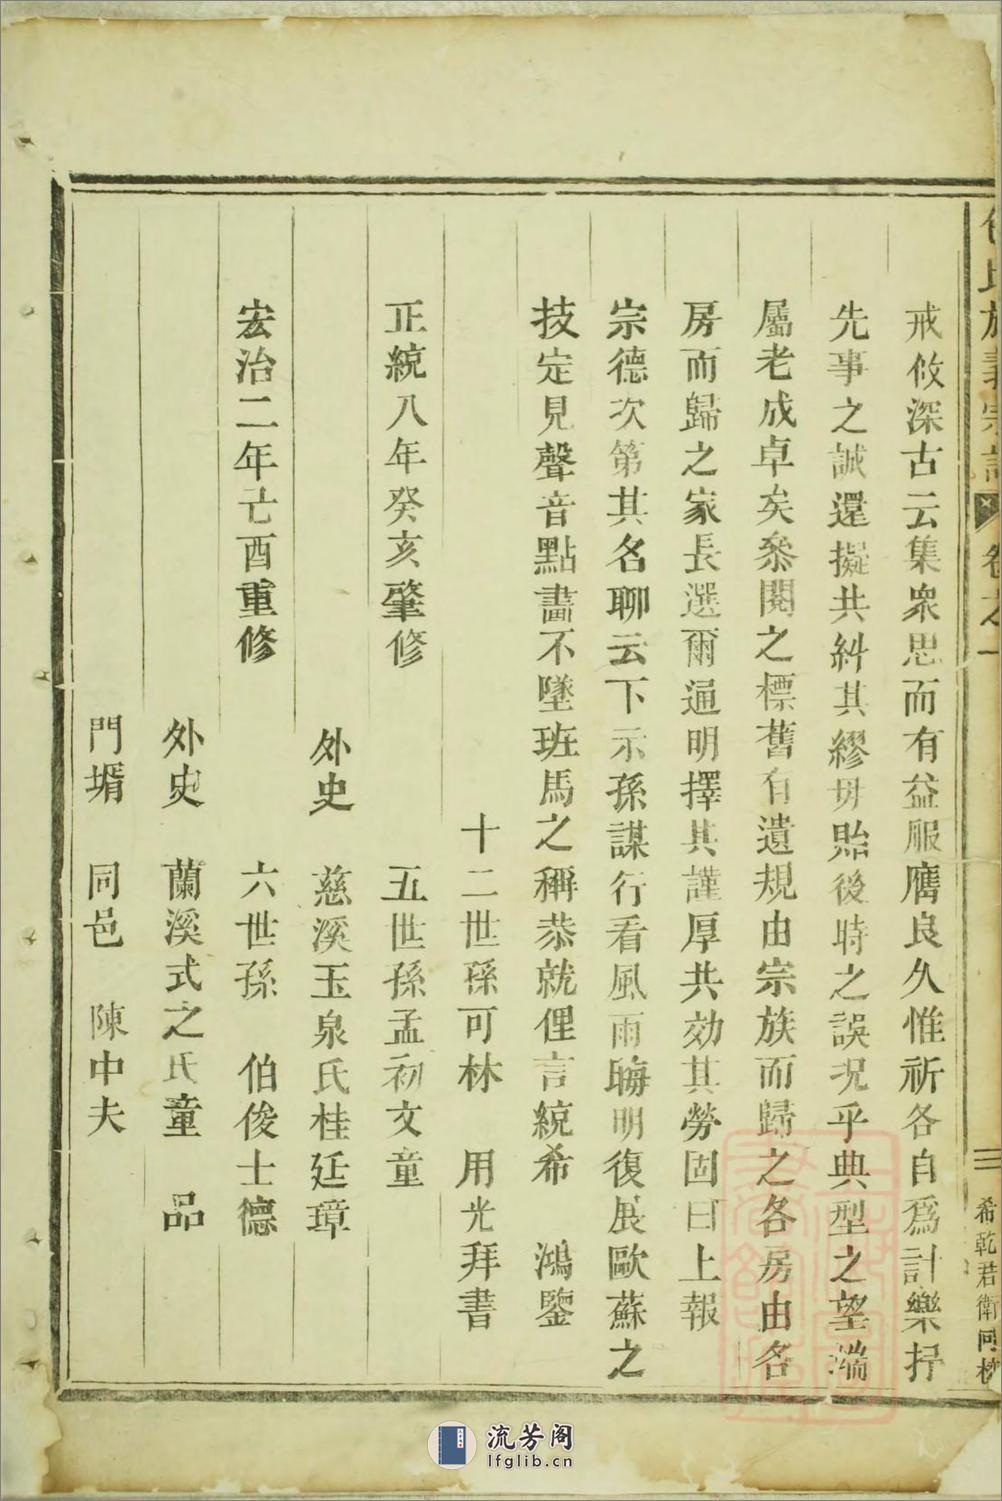 戒攸深古云集衆思而有益服膺良久惟祈各自爲計樂抒
先事之誠還擬共糾其繆毋貽後時之誤况乎典型之望端
屬老成卓矣叅閱之標舊有遺規由宗族而歸之各房由各
房而歸之家長選爾通明擇其謹厚共効其勞固曰上報
宗德次第其名聊云下示孫謀行看風雨晦明復展歐蘇之
技定見聲音點畵不墜班馬之稱恭就俚言統希　鴻鑒
十二世孫可林　用光拜書
正統八年癸亥肇修　五世孫孟初文童
外史　慈溪玉泉氏桂廷璋
宏治二年亡酉重修　六世孫　伯俊士德
外史　蘭溪式之氏童　品
門壻　同邑　陳中夫
氏族義宗譜　卷之一　三　希乾君衛同校
流芳阁
lfglib.cn